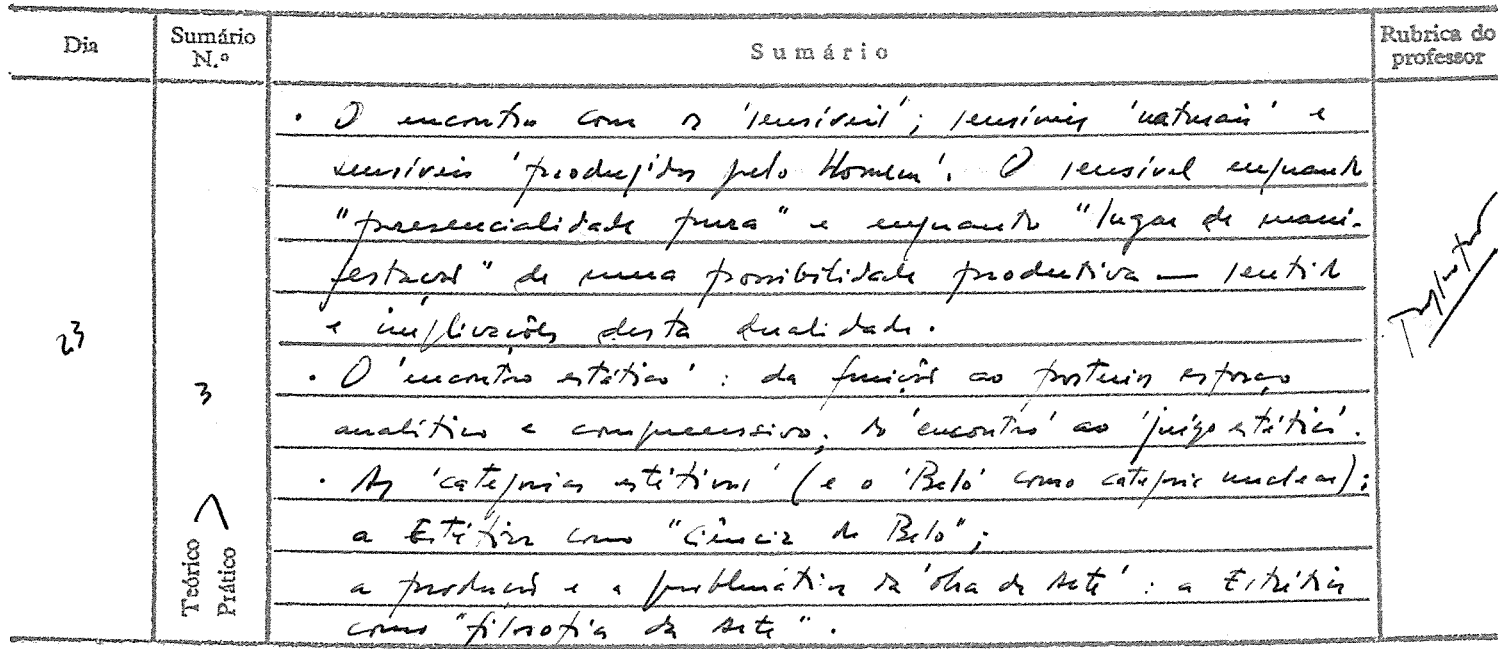 Dia
Sumário N.º
Sumário
Rubrica do professor
• O encontro com os 'sensíveis'; sensíveis 'naturais' e
sensíveis 'produzidos pelo Homem'. O sensível enquanto
"presencialidade pura" e enquanto "lugar de mani-
festação" de uma possibilidade produtiva — sentido
e implicações desta dualidade.
• O 'encontro estético': da fruição ao posterior esforço
analítico e compreensivo; do 'encontro' ao 'juízo estético'.
• As 'categorias estéticas' (e o 'Belo' como categoria nuclear);
a Estética como "Ciência do Belo";
a produção e a problemática da 'obra de Arte': a Estética
como "filosofia da Arte".
23
3
Teórico
Prático